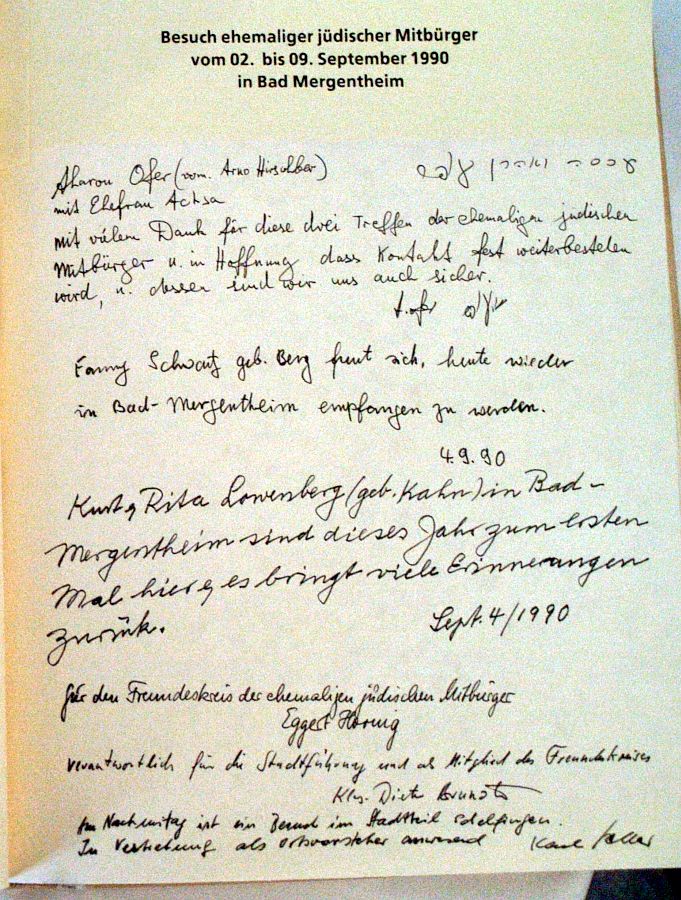 Besuch ehemaliger jüdischer Mitbürger
vom 02. bis 09. September 1990
in Bad Mergentheim
Aharon Ofer (vorm. Arno Hirschber)
עכסה ואהרן עופר
mit Ehefrau Achsa
mit vielem Dank für diese drei Treffen der ehemaligen jüdischen
Mitbürger u. in Hoffnung dass Kontakt fest weiterbestehen
wird, u. dessen sind wir uns auch sicher.
A. Ofer
Fanny Schwarz geb. Berg freut sich, heute wieder
in Bad-Mergentheim empfangen zu werden.
4.9.90
Kurt & Rita Lowenberg (geb. Kahn) in Bad-
Mergentheim sind dieses Jahr zum ersten
Mal hier & es bringt viele Erinnerungen
zurück.
Sept. 4/1990
für den Freundeskreis der ehemaligen jüdischen Mitbürger
Eggert Hornig
verantwortlich für die Stadtführung und als Mitglied des Freundeskreises
Dieter
Am Nachmittag ist ein Besuch im Stadtteil Edelfingen.
In Vertretung als Ortsvorsteher anwesend